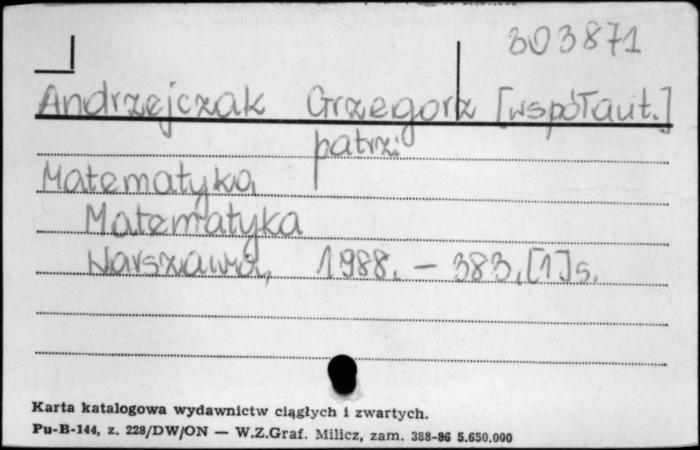 303871
Andrzejczak Grzegorz [współaut.]
patrz:
Matematyka
Matematyka
Warszawa, 1988. – 383,[1]s.
Karta katalogowa wydawnictw ciągłych i zwartych.
Pu-B-144, z. 228/DW/ON — W.Z.Graf. Milicz, zam. 388-86 5.650.000